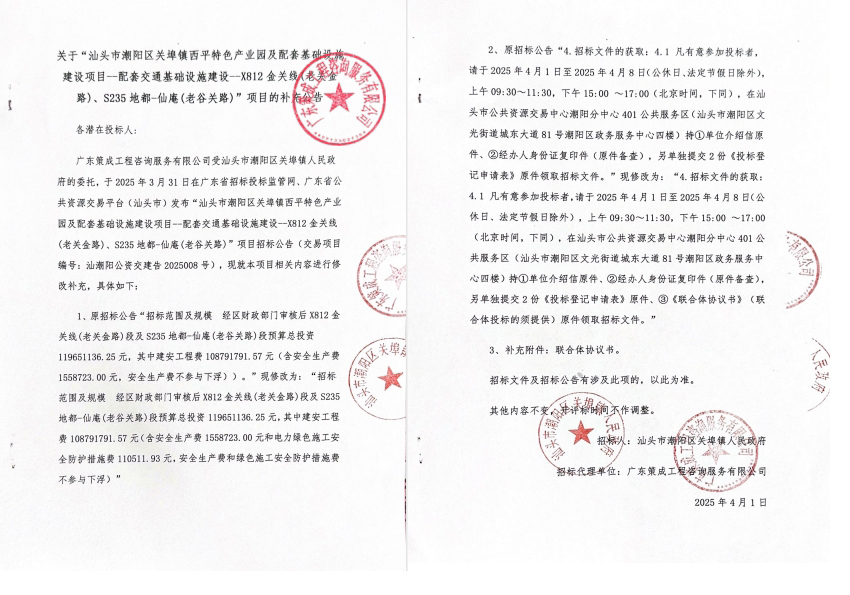 关于“汕头市潮阳区关埠镇西平特色产业园及配套基础设施
建设项目--配套交通基础设施建设--X812金关线(老关金
路)、S235地都-仙庵(老谷关路)”项目的补充公告
各潜在投标人:
广东策成工程咨询服务有限公司受汕头市潮阳区关埠镇人民政
府的委托，于2025年3月31日在广东省招标投标监管网、广东省公
共资源交易平台（汕头市）发布“汕头市潮阳区关埠镇西平特色产业
园及配套基础设施建设项目--配套交通基础设施建设--X812金关线
(老关金路)、S235地都-仙庵(老谷关路)”项目招标公告（交易项目
编号：汕潮阳公资交建告2025008号），现就本项目相关内容进行修
改补充，具体如下:
1、原招标公告“招标范围及规模 经区财政部门审核后X812金
关线(老关金路)段及S235地都-仙庵(老谷关路)段预算总投资
119651136.25元，其中建安工程费108791791.57元（含安全生产费
1558723.00元，安全生产费不参与下浮））。”现修改为：“招标
范围及规模 经区财政部门审核后X812金关线(老关金路)段及S235
地都-仙庵(老谷关路)段预算总投资119651136.25元,其中建安工程
费108791791.57元(含安全生产费1558723.00元和电力绿色施工安
全防护措施费110511.93元,安全生产费和绿色施工安全防护措施费
不参与下浮）”
2、原招标公告“4.招标文件的获取：4.1 凡有意参加投标者,
请于2025年4月1日至2025年4月8日(公休日、法定节假日除外),
上午09:30～11:30，下午15:00 ～17:00（北京时间，下同），在汕
头市公共资源交易中心潮阳分中心401公共服务区（汕头市潮阳区文
光街道城东大道81号潮阳区政务服务中心四楼）持①单位介绍信原
件、②经办人身份证复印件（原件备查），另单独提交2份《投标登
记申请表》原件领取招标文件。”现修改为：“4.招标文件的获取:
4.1 凡有意参加投标者,请于2025年4月1日至2025年4月8日(公
休日、法定节假日除外），上午09:30～11:30，下午15:00 ～17:00
（北京时间，下同），在汕头市公共资源交易中心潮阳分中心401公
共服务区（汕头市潮阳区文光街道城东大道81号潮阳区政务服务中
心四楼）持①单位介绍信原件、②经办人身份证复印件（原件备查），
另单独提交2份《投标登记申请表》原件、③《联合体协议书》（联
合体投标的须提供）原件领取招标文件。”
3、补充附件：联合体协议书。
招标文件及招标公告有涉及此项的，以此为准。
其他内容不变，开评标时间不作调整。
招标人：汕头市潮阳区关埠镇人民政府
招标代理单位：广东策成工程咨询服务有限公司
2025年4月1日